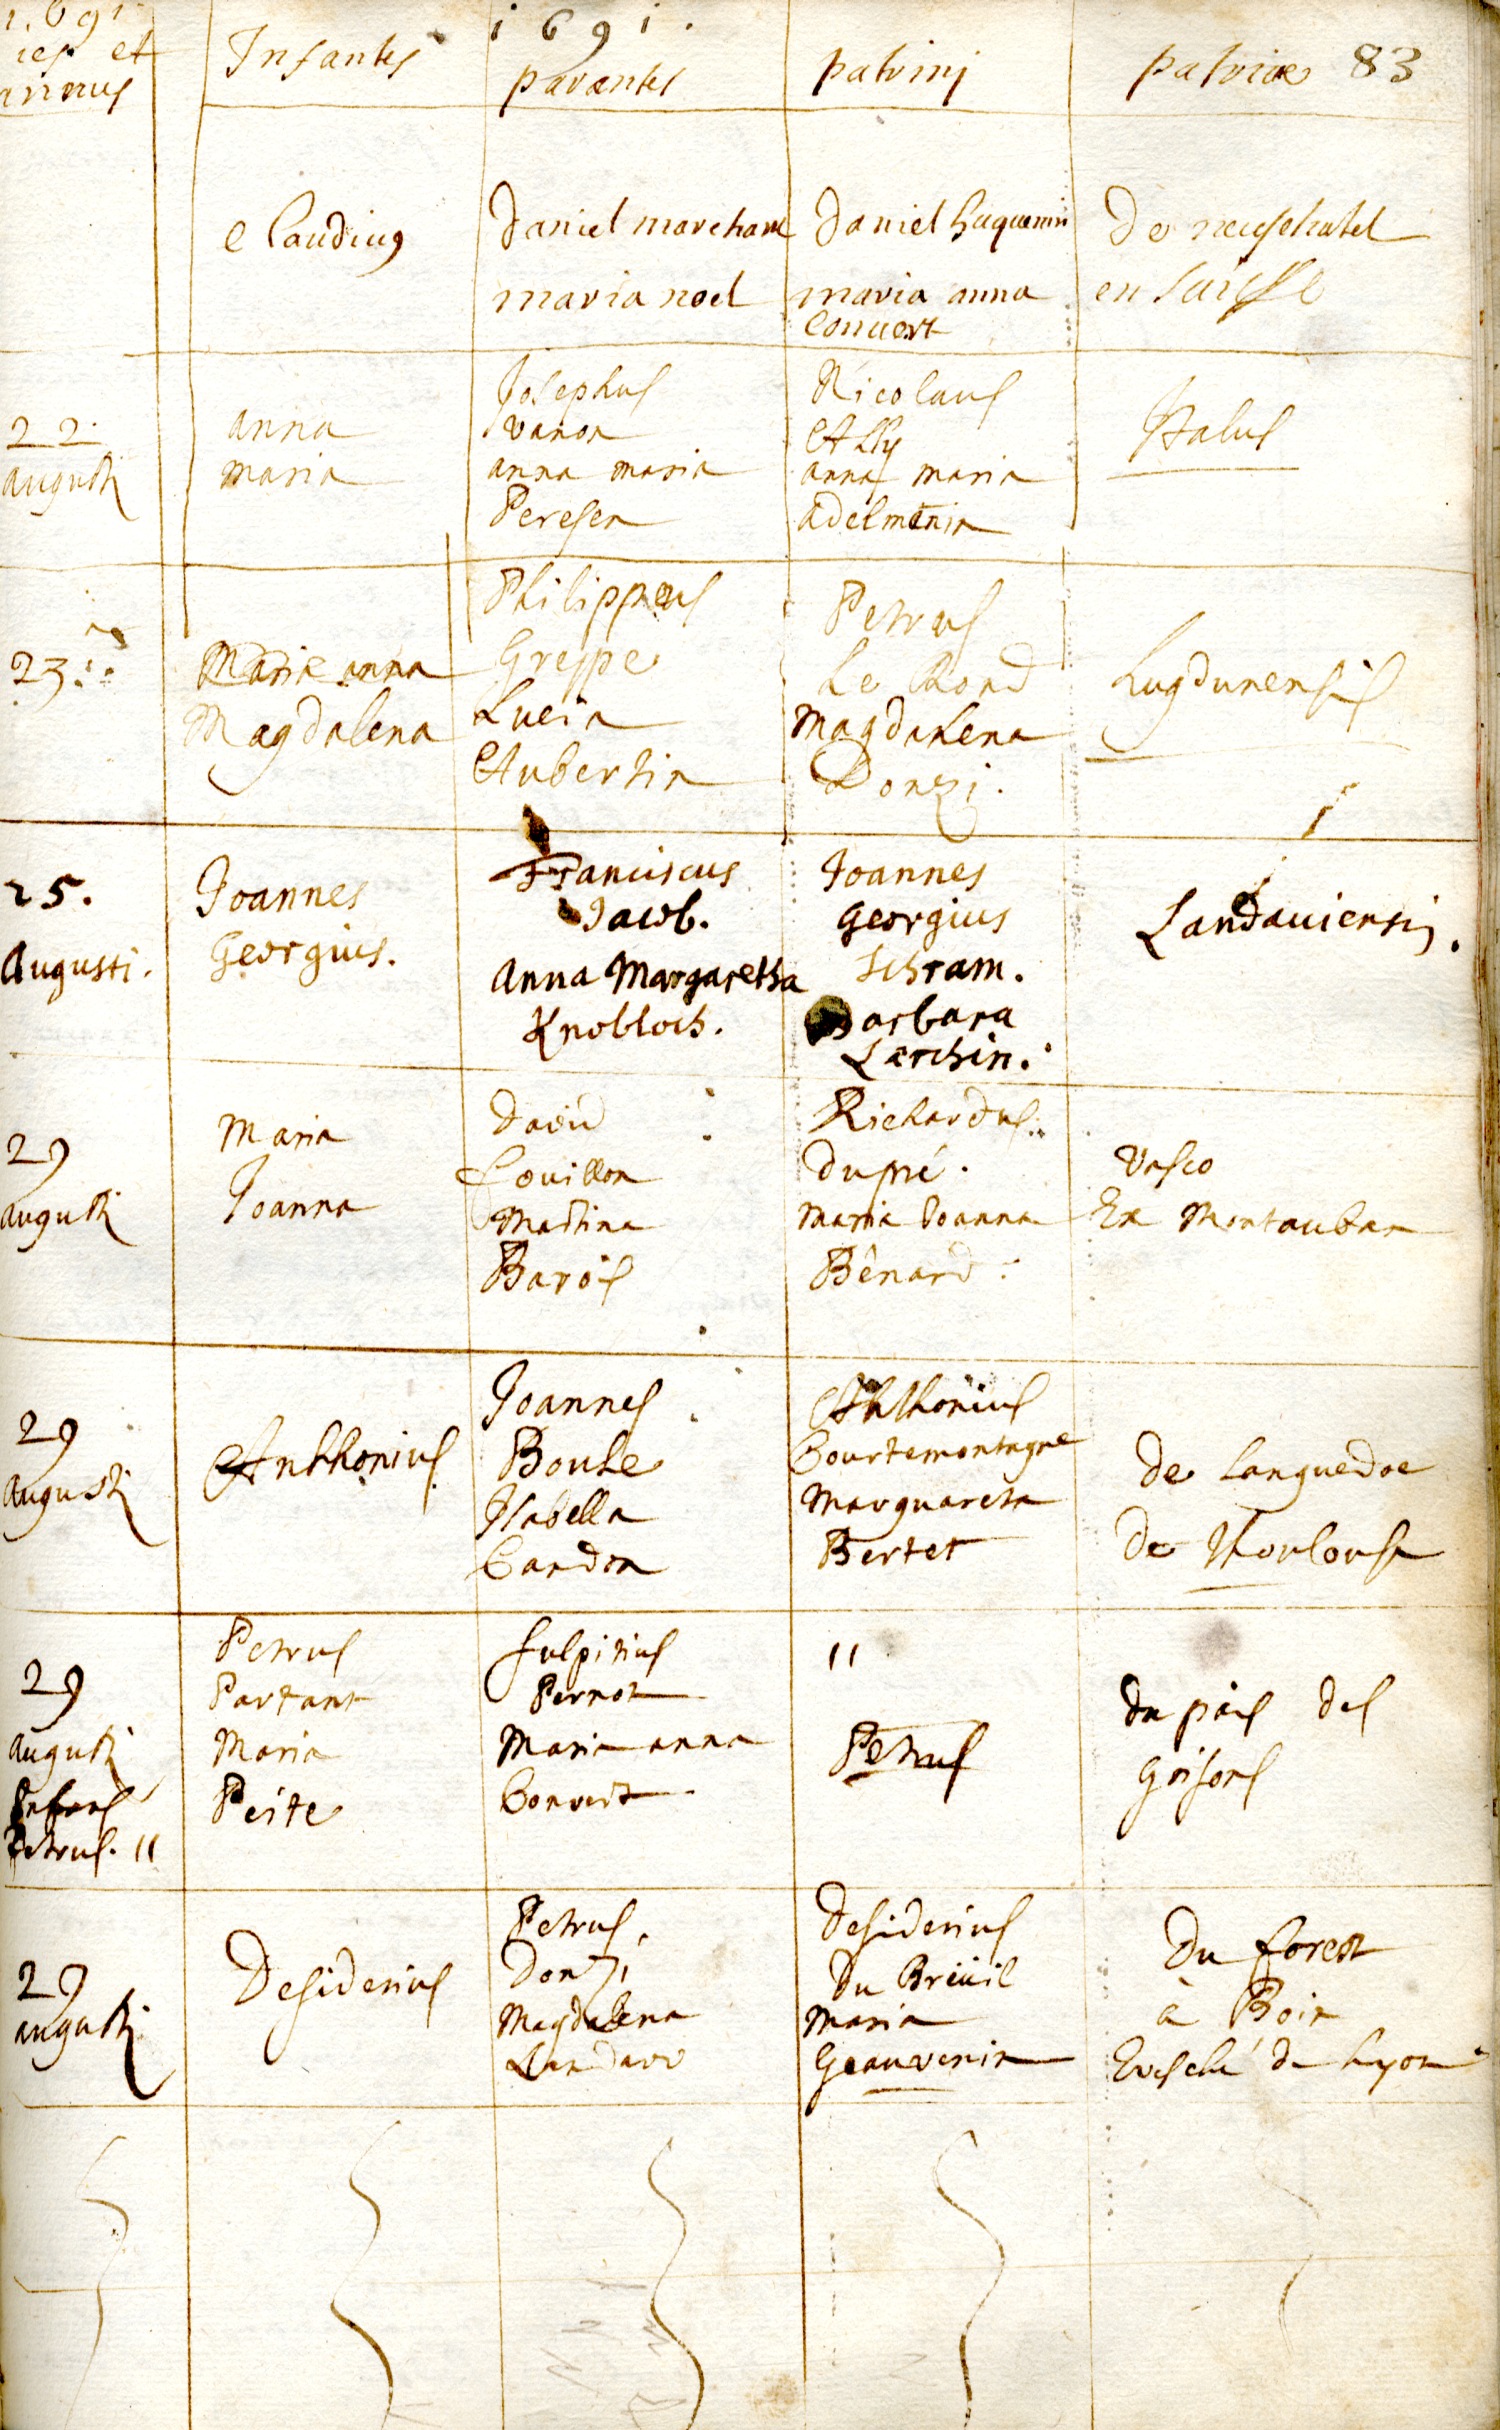 1691
1691.
dies et
annus
Infantes
parentes
patrinj
patriae 83
Claudius
Daniel marchant
maria noel
Daniel huguenin
maria anna
Convert
De neufchatel
en suisse
22.
augusti
anna
maria
Josephus
vanon
anna maria
Peresen
Nicolaus
Ally
anna maria
adelmenin
Italus
23
Maria anna
Magdalena
Philippeus
Greppe
Lucia
Aubertin
Petrus
Le Rond
Magdalena
Donzi.
Lugdunensis
25.
Augusti.
Joannes
Georgius.
Franciscus
Jacob.
Anna Margaretha
Knobloch.
Joannes
Georgius
Schram.
Barbara
Lærchin.
Landaviensis.
29
augusti
Maria
Joanna
David
Couillon
Martina
Barois
Richardus
dupré.
Maria Joanna
Bénard
Vasco
Ex Montauban
29
Augusti
Anthonius
Joannes
Boule
Isabella
Candon
Anthonius
Courtemontagne
Marguareta
Bertet
De Languedoc
De Thoulouse
29
augusti
Infans
Petrus. "
Petrus
Partant
Maria
Peite
Sulpitius
Pernot
Maria anna
Convert
"
Petrus
du païs des
Grisons
29
augusti
Desiderius
Petrus
Donzi
Magdalena
Landau
Desiderius
Du Breüil
Maria
Geauvenin
Du forest
à Boin
Evesché de Lyon